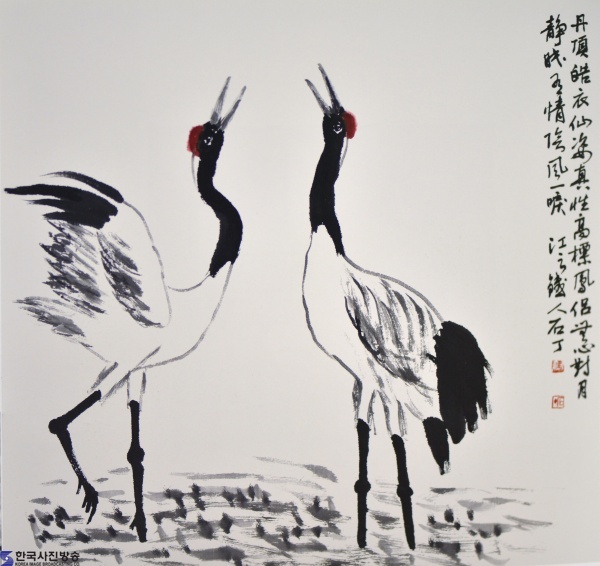 丹頂皓衣仙姿真性高標鳳侶无心對月
靜眺有情臨風一唳 江之鐵人石丁
한국사진방송
KOREA IMAGE BROADCASTING CO